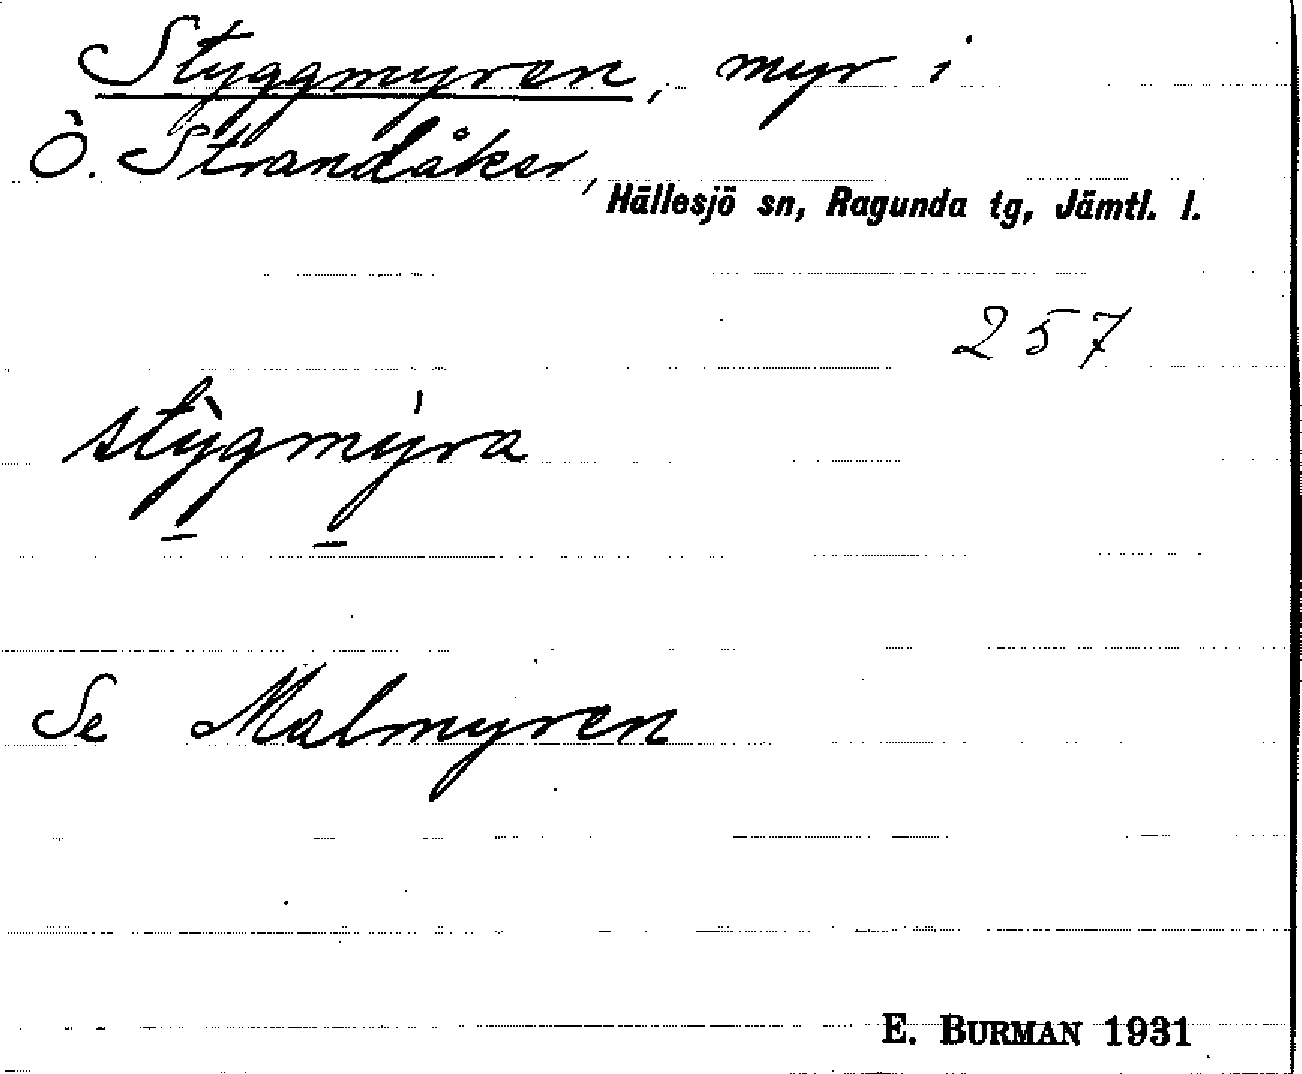 Styggmyren, myr i
Ö. Strandåker,
Hällesjö sn, Ragunda tg, Jämtl. l.
257
stỳgmýra
Se Malmyren
E. BURMAN 1931